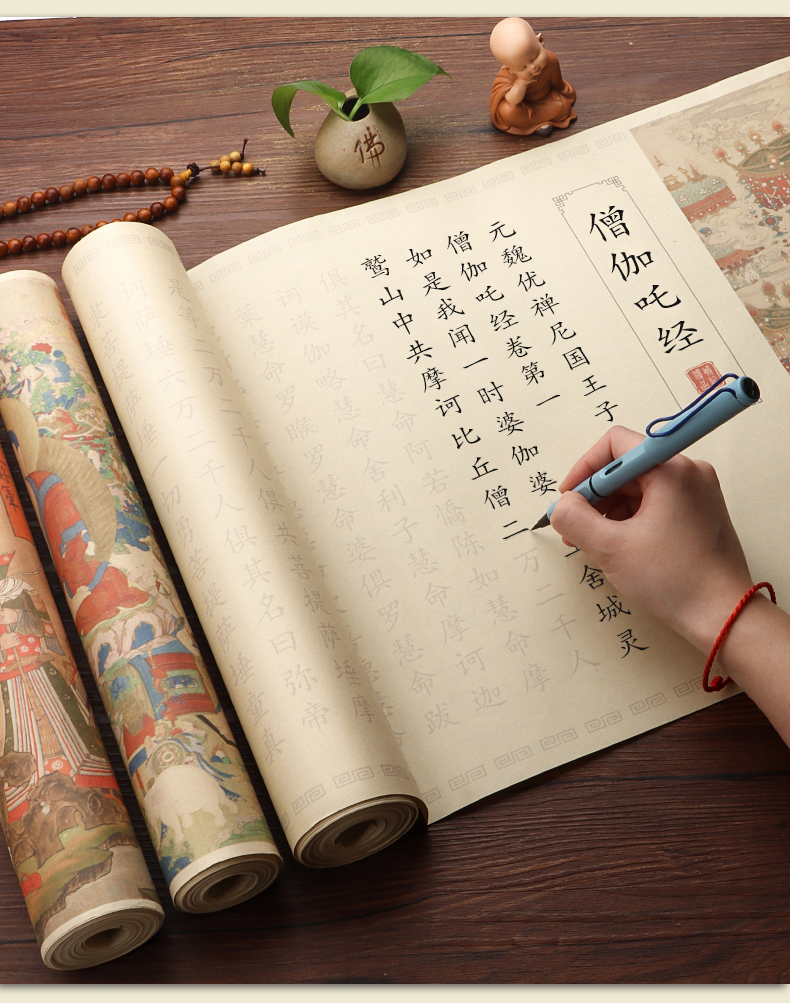 佛
僧伽吒经
元魏优禅尼国王子
僧伽吒经卷第一
如是我闻一时婆伽婆
舍城灵
鹫山中共摩诃比丘僧二万二千人
俱其名曰慧命阿若憍陈如慧命摩
诃谟伽略慧命舍利子慧命摩诃迦
葉慧命罗睺罗慧命婆俱罗慧命跋
人俱共菩提萨埵摩
诃萨埵六万二千人俱其名曰弥帝
菩提萨埵一切勇菩提萨埵童真